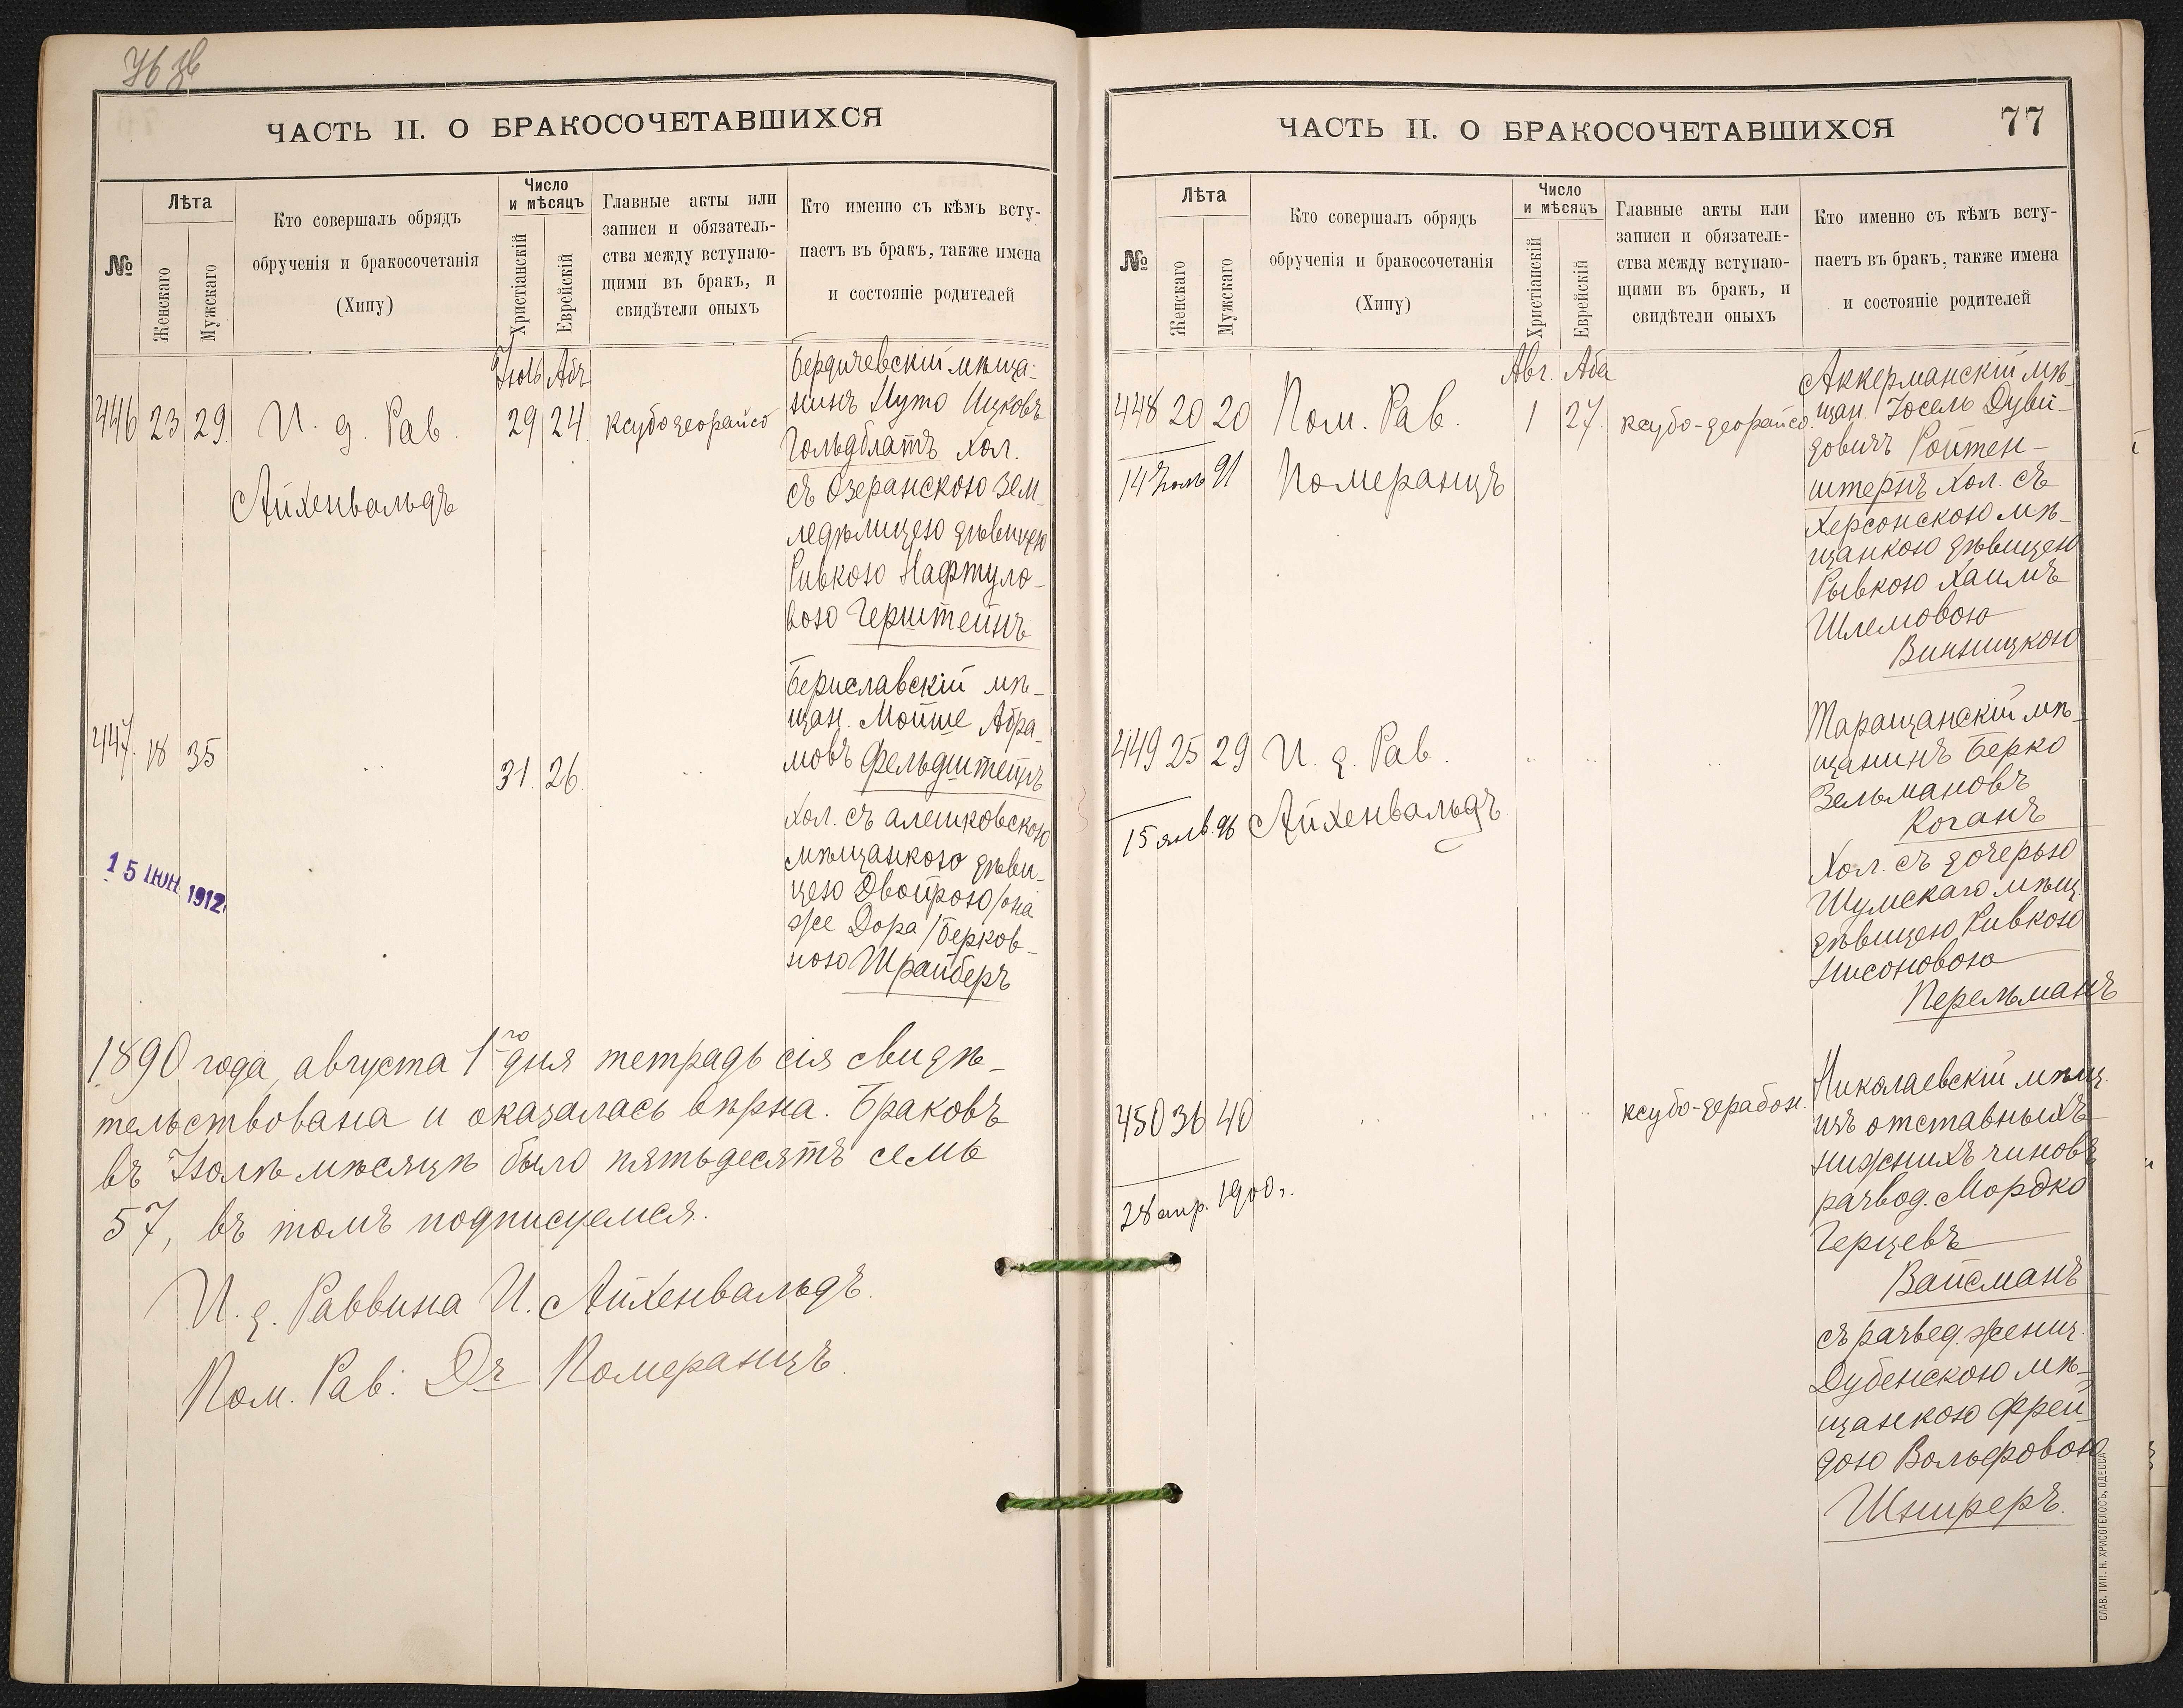 ЧАСТЬ II. О БРАКОСОЧЕТАВШИХСЯ
№
Лѣта
Женскаго
Мужскаго
Кто совершалъ обрядъ
обрученія и бракосочетанія
(Хипу)
Число
и мѣсяцъ
Христіанскій
Еврейскій
Главные акты или
записи и обязатель-
ства между вступаю-
щими въ бракъ, и
свидѣтели оныхъ
Кто именно съ кѣмъ всту-
паетъ въ бракъ, также имена
и состояніе родителей
Іюль Абъ
446 23 29. И. д. Рав. 29 24. ксубо деорайсо
Айхенвальдъ
Бердичевскій мѣща-
нинъ Нуто Ицковъ
Гольдблатъ хол.
съ Озеранскою зем-
ледѣлицею дѣвицею
Ривкою Нафтуло-
вою Герштейнъ
447. 18 35 31. 26.
Бериславскій мѣ-
щан. Мойше Абра-
мовъ Фельдштейнъ
хол. съ алешковскою
мѣщанкою дѣви-
цею Двойрою /она
же Дора/ Берков-
ною Шрайберъ
15 ИЮН. 1912.
1890 года, августа 1го дня тетрадь сія свидѣ-
тельствована и оказалась вѣрна. Браковъ
въ Іюлѣ мѣсяцѣ было пятьдесятъ семь
57, въ томъ подписуемся.
И. д. Раввина И. Айхенвальдъ.
Пом. Рав. Dr Померанцъ.
ЧАСТЬ II. О БРАКОСОЧЕТАВШИХСЯ 77
№
Лѣта
Женскаго
Мужскаго
Кто совершалъ обрядъ
обрученія и бракосочетанія
(Хипу)
Число
и мѣсяцъ
Христіанскій
Еврейскій
Главные акты или
записи и обязатель-
ства между вступаю-
щими въ бракъ, и
свидѣтели оныхъ
Кто именно съ кѣмъ всту-
паетъ въ бракъ, также имена
и состояніе родителей
Авг. Аба
448 20 20 Пом. Рав. 1 27. ксубо-деорайсо.
14 Іюль 91 Померанцъ
Аккерманскій мѣ-
щан. Іосель Дуви-
довичъ Ройтен-
штернъ хол. съ
Херсонскою мѣ-
щанкою дѣвицею
Рывкою Хаимъ
Шлемовою
Винницкою
449 25 29 И. д. Рав.
15 янв. 96 Айхенвальдъ.
Таращанскій мѣ-
щанинъ Берко
Зельмановъ
Коганъ
хол. съ дочерью
Шумскаго мѣщ.
дѣвицею Ривкою
Нисоновою
Перельманъ
450 36 40 ксубо-дерабон.
28 апр. 1900 г.
Николаевскій мѣщ.
изъ отставныхъ
нижнихъ чиновъ
развод. Мордко
Герцевъ
Вайсманъ
съ развед. женщ.
Дубенскою мѣ-
щанкою Фрей-
дою Вольфовою
Шниреръ.
СЛАВ. ТИП. Н. ХРИСОГЕЛОСЪ, ОДЕССА